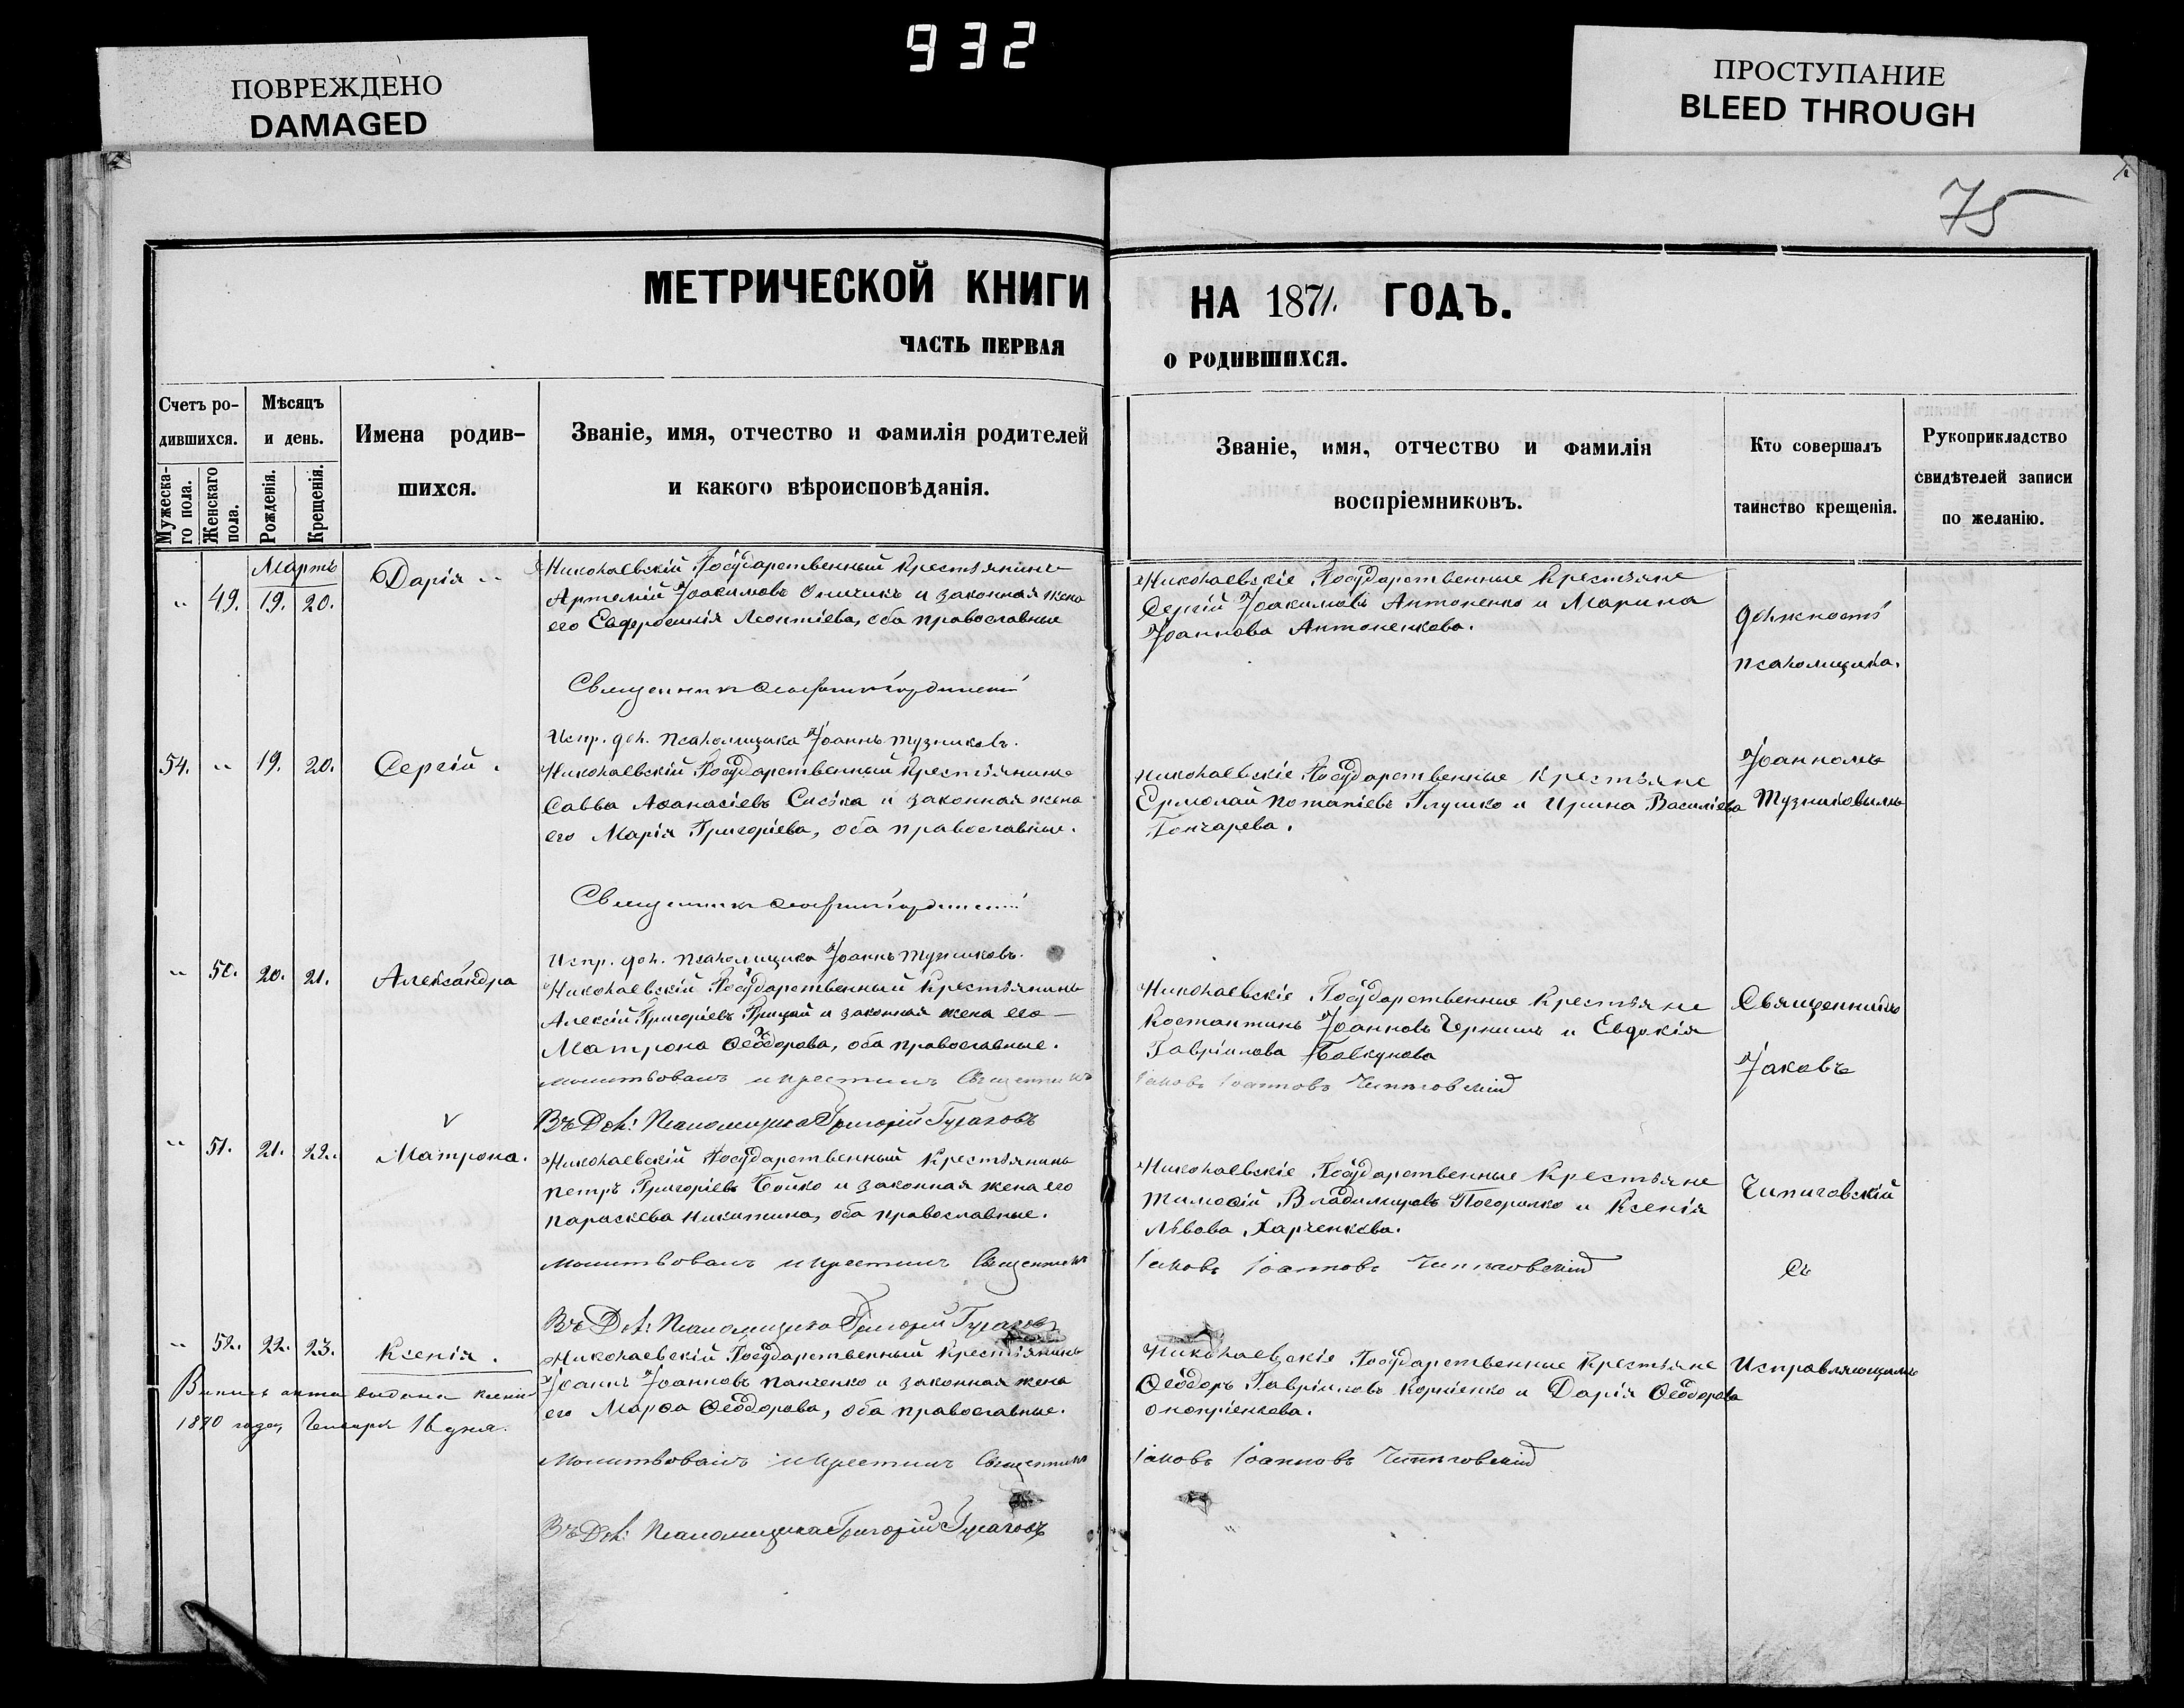 932
ПОВРЕЖДЕНО
DAMAGED
ПРОСТУПАНИЕ
BLEED THROUGH
75
МЕТРИЧЕСКОЙ КНИГИ НА 1871. ГОДЪ.
ЧАСТЬ ПЕРВАЯ О РОДИВШИХСЯ.
Счетъ ро-
дившихся.
Мужеска-
го пола.
Женскаго
пола.
Мѣсяцъ
и день.
Рожденія.
Крещенія.
Имена родив-
шихся.
Званіе, имя, отчество и фамилія родителей
и какого вѣроисповѣданія.
Званіе, имя, отчество и фамилія
воспріемниковъ.
Кто совершалъ
таинство крещенія.
Рукоприкладство
свидѣтелей записи
по желанію.
Мартъ
" 49. 19. 20. Дарія
Николаевскій Государственный Крестьянинъ
Артемій Іоакимовъ Оничикъ и законная жена
его Евфросинія Леонтіева, оба православные
Николаевскіе Государственные Крестьяне
Сергій Іоакимовъ Антоненко и Марина
Іоаннова Антоненкова.
Священникъ
Испр. дол. псаломщика Іоаннъ Тузниковъ.
54. " 19. 20. Сергій.
Николаевскій Государственный Крестьянинъ
Савва Аѳанасіевъ Сиська и законная жена
его Марія Григоріева, оба православные.
Николаевскіе Государственные Крестьяне
Ермолай Потапіевъ Глушко и Ирина Василіева
Гончарева.
Священникъ
Испр. дол. псаломщика Іоаннъ Тузниковъ.
" 50. 20. 21. Александра
Николаевскій Государственный Крестьянинъ
Алексій Григоріевъ Грицай и законная жена его
Матрона Ѳеодорова, оба православные.
Николаевскіе Государственные Крестьяне
Костантинъ Іоанновъ Чернышъ и Евдокія
Гавріилова Бовкунова
Молитвовалъ и крестилъ Священникъ Іаковъ Іоанновъ Чипиговскій
Въ Дол: Псаломщика Григорій Гусаковъ
" 51. 21. 22. Матрона.
Николаевскій Государственный Крестьянинъ
Петръ Григоріевъ Бойко и законная жена его
Параскева Никитина, оба православные.
Николаевскіе Государственные Крестьяне
Тимоѳій Владимировъ Погорилко и Ксенія
Львова Харченкова.
Молитвовалъ и крестилъ Священникъ Іаковъ Іоанновъ Чипиговскій
Въ Дол: Псаломщика Григорій Гусаковъ
" 52. 22. 23. Ксенія.
Николаевскій Государственный Крестьянинъ
Іоаннъ Іоанновъ Панченко и законная жена
его Марѳа Ѳеодорова, оба православные.
Николаевскіе Государственные Крестьяне
Ѳеодоръ Гавріиловъ Корніенко и Дарія Ѳеодорова
Онопріенкова.
Выпись акта выдана Ксеніи
1890 года, Генваря 16 дня.
Молитвовалъ и крестилъ Священникъ Іаковъ Іоанновъ Чипиговскій
Въ Дол: Псаломщика Григорій Гусаковъ
должность
псаломщика.
Іоанномъ
Тузниковымъ
Священникъ
Іаковъ
Чипиговскій
Съ
Исправляющимъ